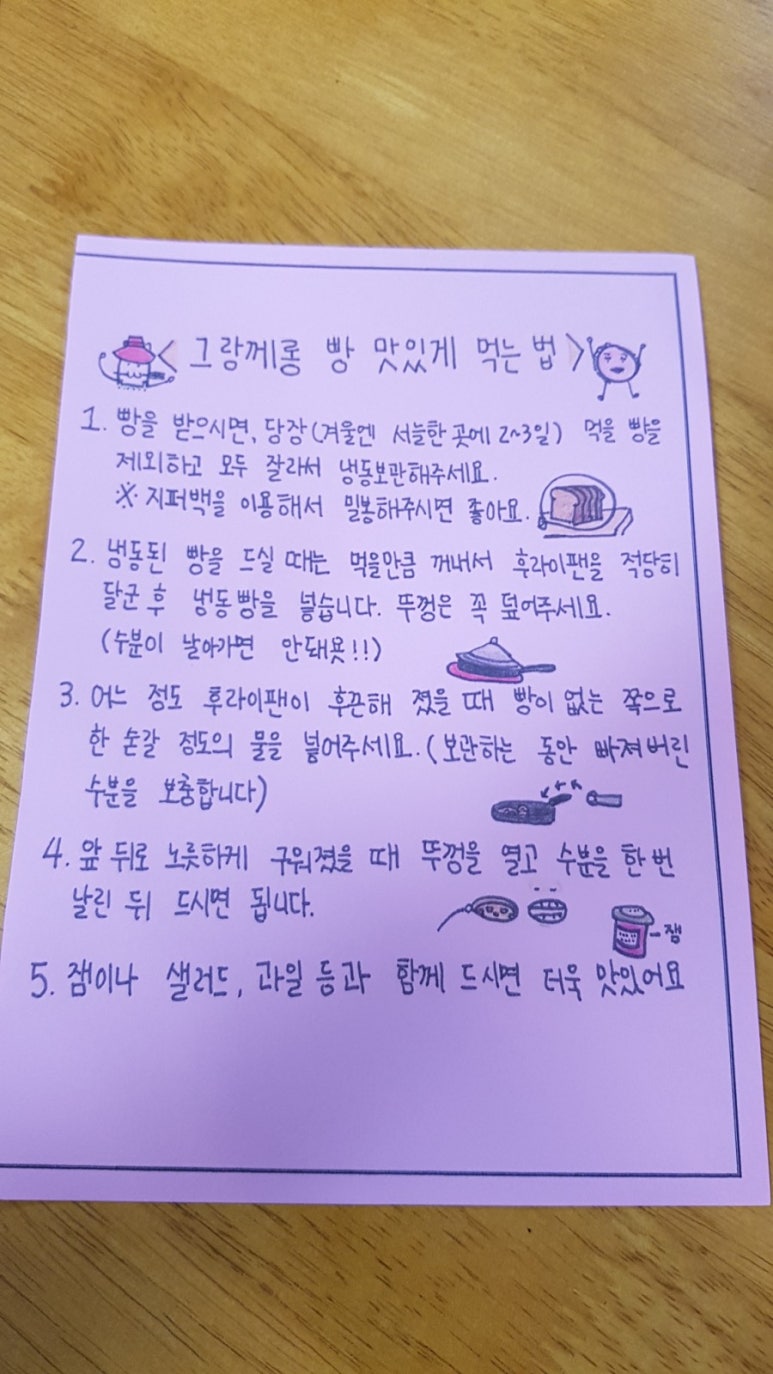 < 그랑께롱 빵 맛있게 먹는 법 >
1. 빵을 받으시면, 당장 (겨울엔 서늘한 곳에 2~3일) 먹을 빵을
제외하고 모두 잘라서 냉동보관해주세요.
※ 지퍼백을 이용해서 밀봉해주시면 좋아요.
2. 냉동된 빵을 드실 때는 먹을만큼 꺼내서 후라이팬을 적당히
달군 후 냉동빵을 넣습니다. 뚜껑은 꼭 덮어주세요.
(수분이 날아가면 안돼욧!!)
3. 어느 정도 후라이팬이 후끈해 졌을 때 빵이 없는 쪽으로
한 숟갈 정도의 물을 넣어주세요. (보관하는 동안 빠져버린
수분을 보충합니다)
4. 앞 뒤로 노릇하게 구워졌을 때 뚜껑을 열고 수분을 한번
날린 뒤 드시면 됩니다.
-잼
5. 잼이나 샐러드, 과일 등과 함께 드시면 더욱 맛있어요